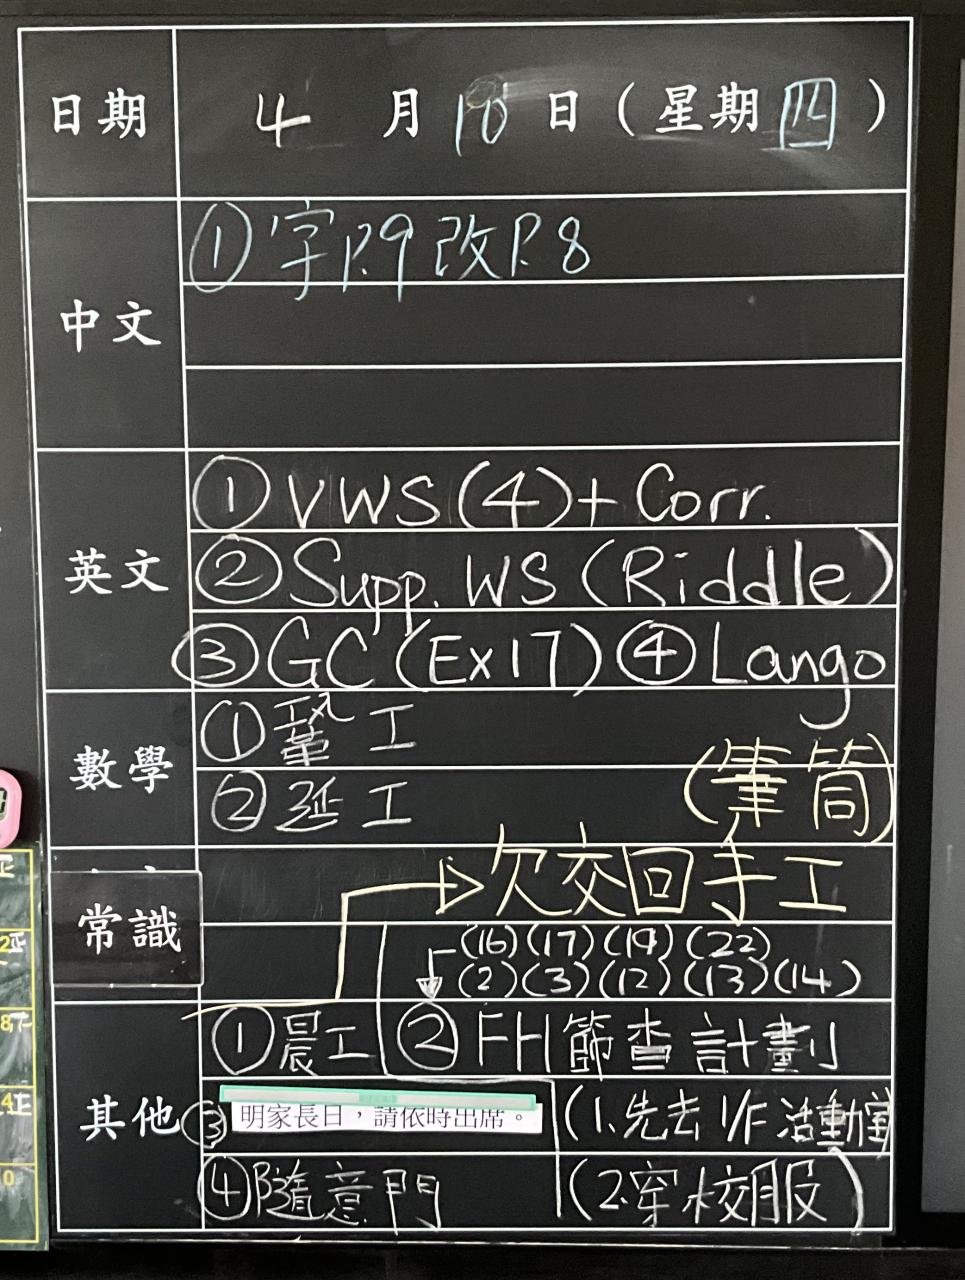 日期 4 月 10 日 ( 星期 四 )
中文
① 字P.9 改P.8
英文
① VWS (4) + Corr.
② Supp. WS (Riddle)
③ GC (Ex17) ④ Lango
數學
① 工
② 延工
(筆筒)
常識
欠交回手工
(16) (17) (19) (22)
(2) (3) (12) (13) (14)
其他
① 晨工 ② FH 篩查計劃
③ 明家長日，請依時出席。
(1. 先去 1/F 活動室)
④ 隨意門
(2. 穿校服)